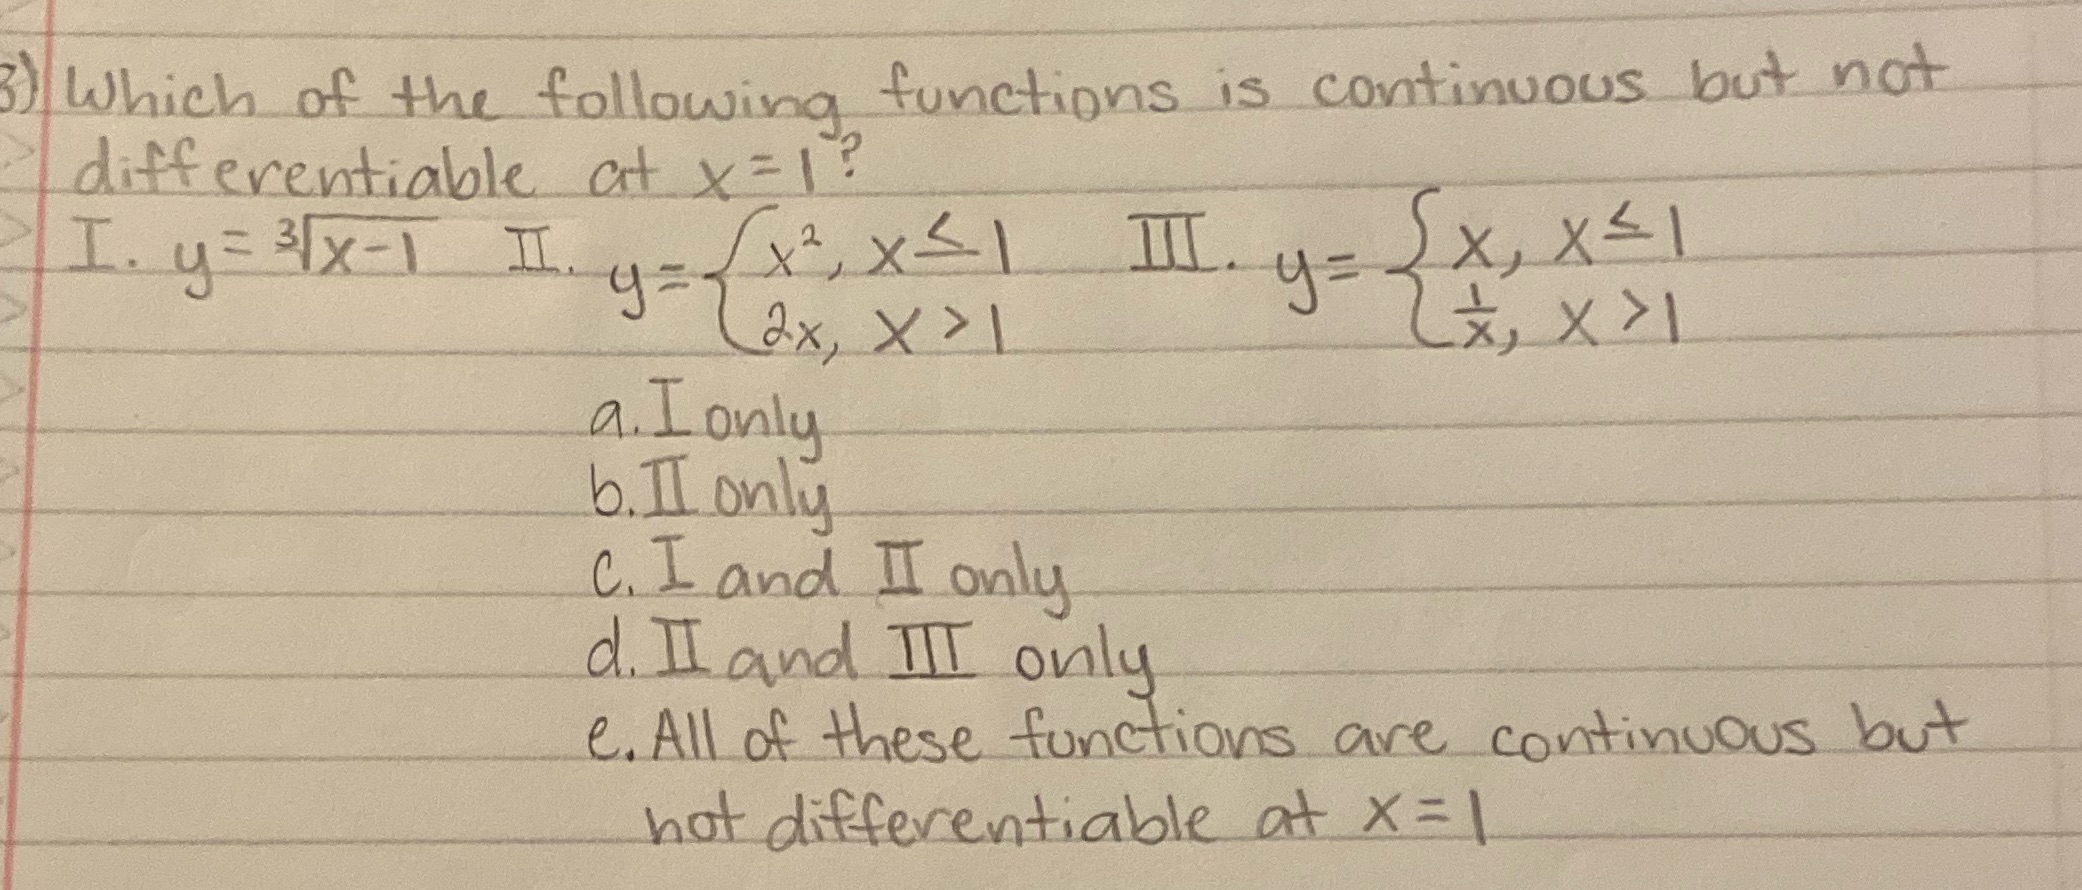 3) Which of the following functions is continuous but not
differentiable at x=1?
I. y=∛(x-1) II. y={x², x≤1 III. y={x, x≤1
{2x, x>1 {1/x, x>1
a. I only
b. II only
c. I and II only
d. II and III only
e. All of these functions are continuous but
not differentiable at x=1